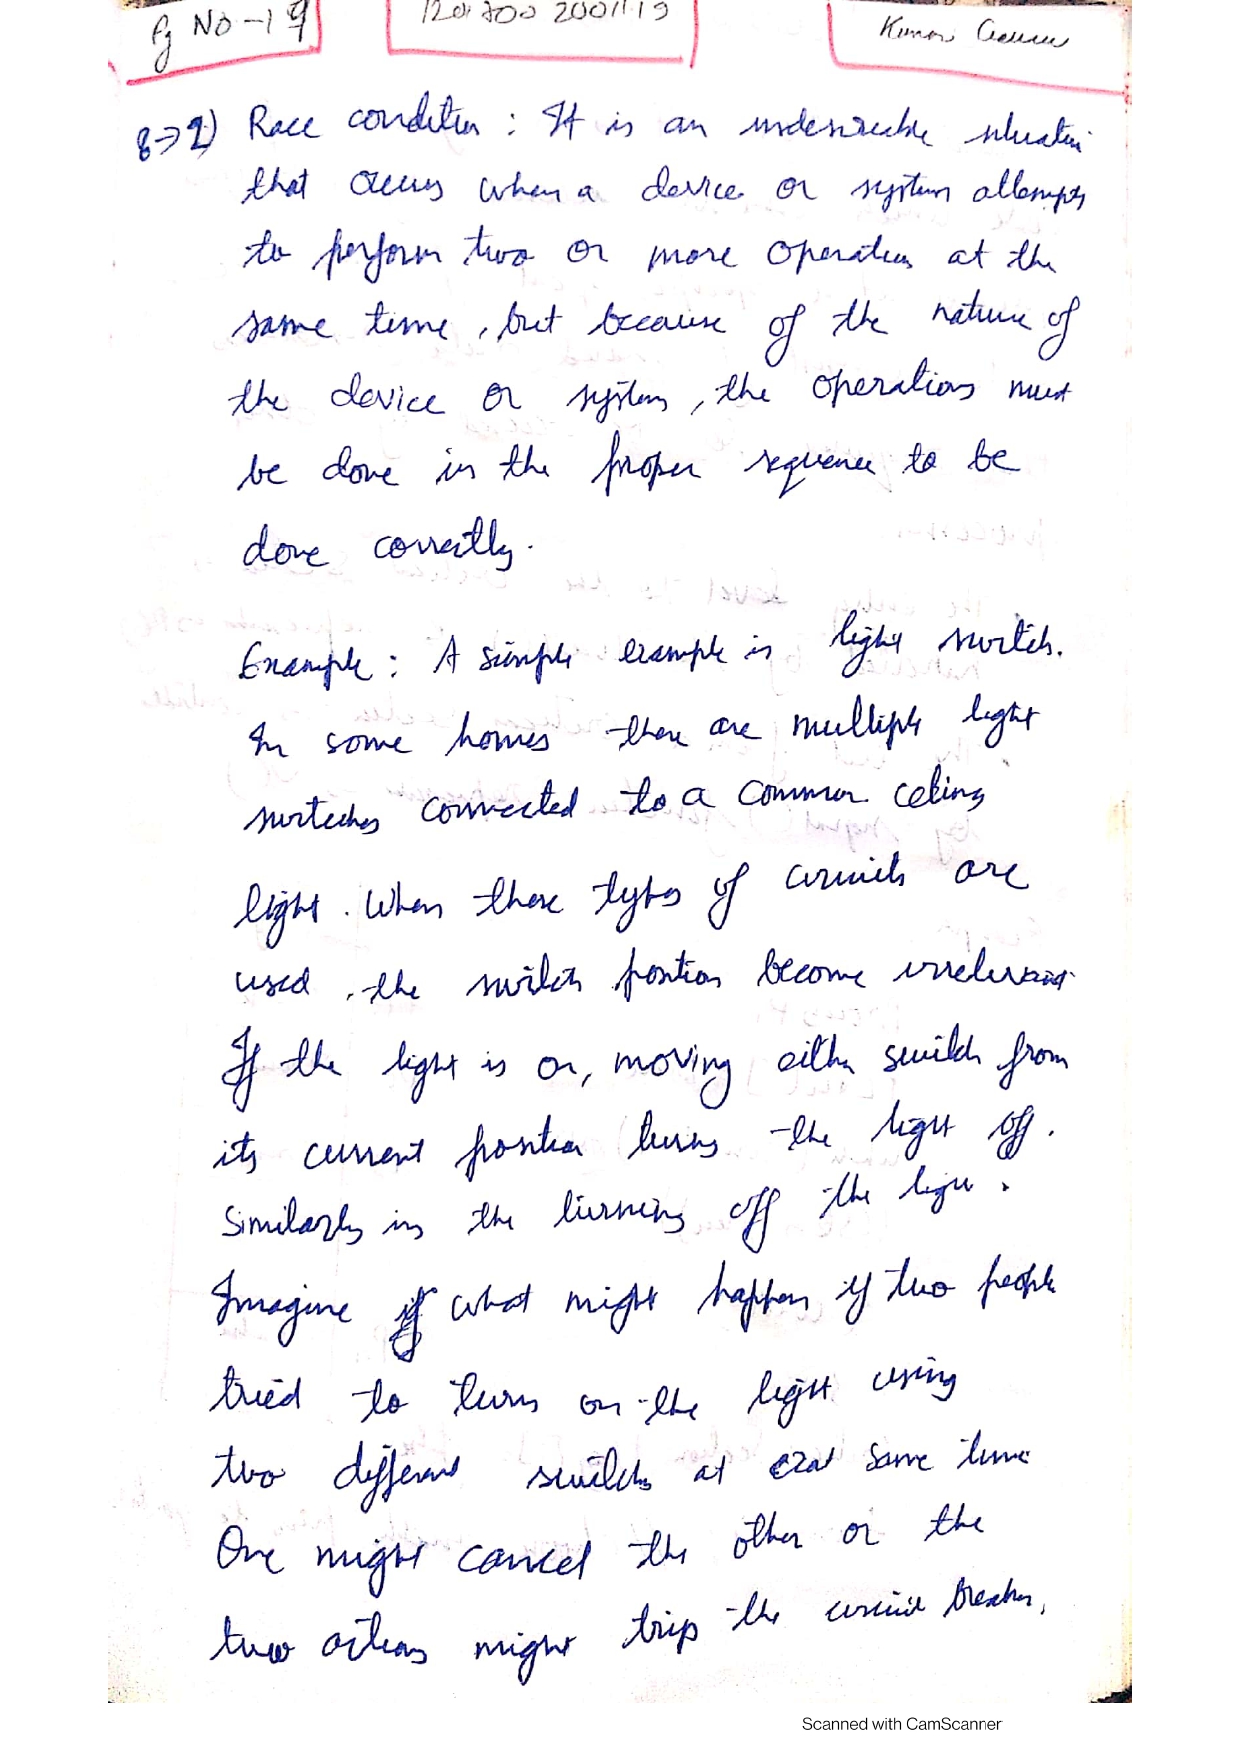 Pg NO-19
Kumar
8→2) Race condition : It is an undesireable situation
that occurs when a device or system attempts
to perform two or more operations at the
same time, but because of the nature of
the device or system, the operations must
be done in the proper sequence to be
done correctly.
Example : A simple example is light switch.
In some homes there are multiple light
switches connected to a common celing
light. When these types of circuits are
used, the switch position become irrelevant
If the light is on, moving either switch from
its current position turns the light off.
Similarly in the turning off the light.
Imagine if what might happen if two people
tried to turn on the light using
two different switch at same time
One might cancel the other or the
two actions might trip the circuit breaker,
Scanned with CamScanner